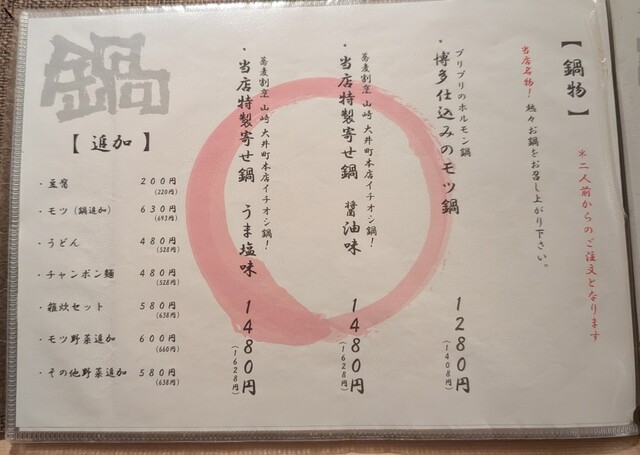 【鍋物】
*二人前からのご注文となります
当店名物！ 様々お鍋をお召し上がり下さい。
プリプリのホルモン鍋
・博多仕込みのモツ鍋 1280円
(1408円)
蕎麦割烹 山崎 大井町本店イチオシ鍋！
・当店特製寄せ鍋 醤油味 1480円
(1628円)
蕎麦割烹 山崎 大井町本店イチオシ鍋！
・当店特製寄せ鍋 うま塩味 1480円
(1628円)
鍋
【追加】
・豆腐 200円
(220円)
・モツ（鍋追加） 630円
(693円)
・うどん 480円
(528円)
・チャンポン麺 480円
(528円)
・雑炊セット 580円
(638円)
・モツ野菜追加 600円
(660円)
・その他野菜追加 580円
(638円)